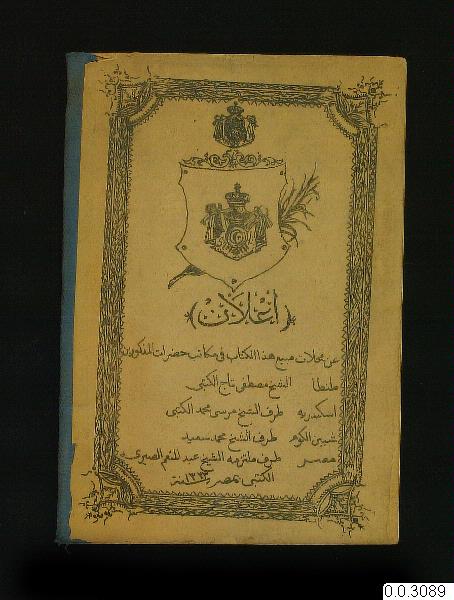 ﴿ اعْلَانْ ﴾
عن محلات مبيع هذا الكتاب فى مكاتب حضرات المذكورين
طنطا الشيخ مصطفى تاج الكتبى
اسكندريه طرف الشيخ مرسى محمد الكتبى
شبين الكوم طرف الشيخ محمد سعيد
مصر طرف ملتزمه الشيخ عبد المنعم
الكتبى بمصر سنة
0.0.3089